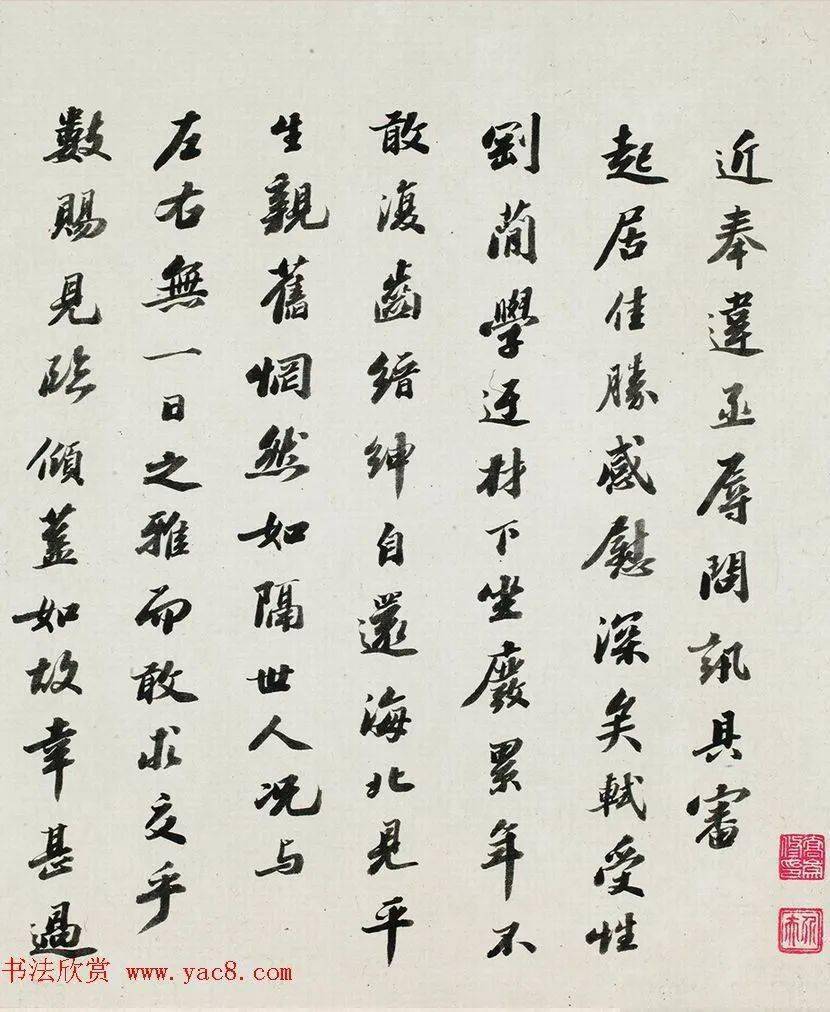 近奉違亟辱問訊具審
起居佳勝感慰深矣軾受性
剛簡學迂材下坐廢累年不
敢復齒縉紳自還海北見平
生親舊惘然如隔世人況与
左右無一日之雅而敢求交乎
數賜見臨傾蓋如故幸甚過
书法欣赏 www.yac8.com